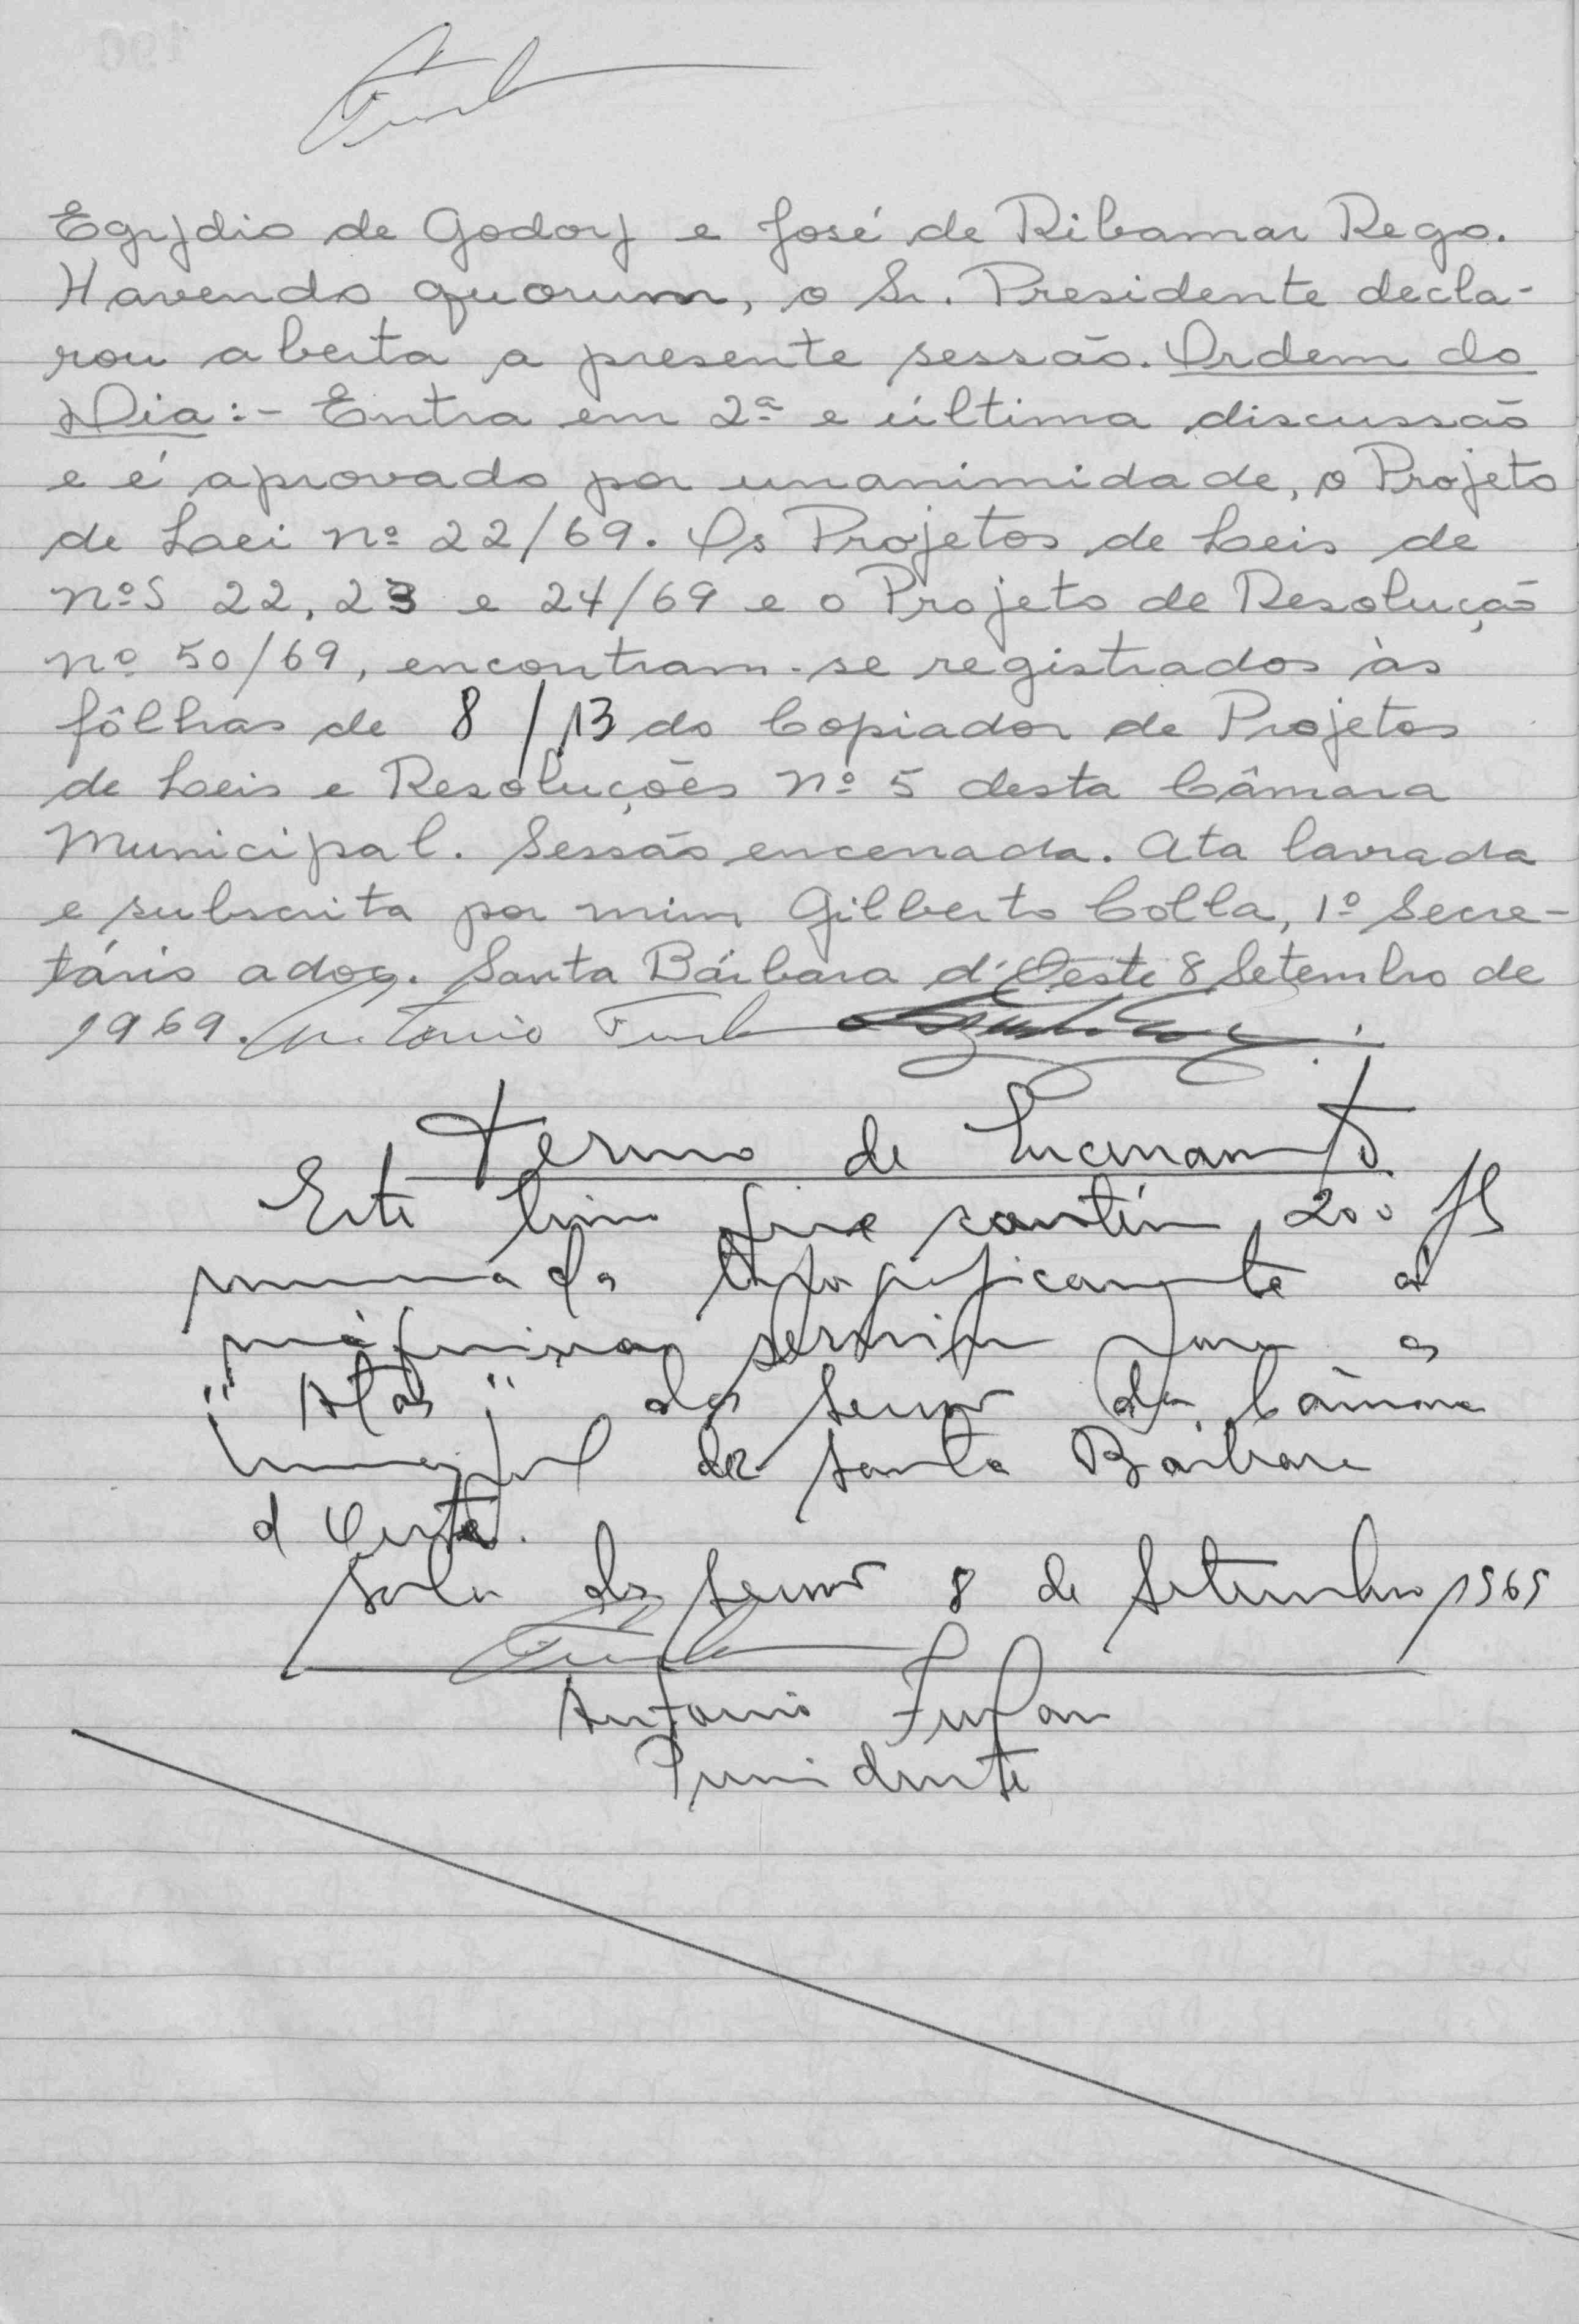 Egydio de Godoy e José de Ribamar Rego.
Havendo quorum, o Sr. Presidente decla-
rou aberta a presente sessão. Ordem do
Dia:- Entra em 2ª e última discussão
e é aprovado por unanimidade, o Projeto
de Lei nº 22/69. Os Projetos de Leis de
nºs 22, 23 e 24/69 e o Projeto de Resolução
nº 50/69, encontram-se registrados às
fôlhas de 8/13 do Copiador de Projetos
de Leis e Resoluções nº 5 desta Câmara
Municipal. Sessão encerrada. Ata lavrada
e subscrita por mim Gilberto Colla, 1º Secre-
tário adoc. Santa Bárbara d'Oeste 8 Setembro de
1969. Antonio Furlan
Termo de Encerramento
Este livro que contém 200 fls
numeradas tipograficamente à
máquina, para as
"Atas" das Sessões da Câmara
Municipal de Santa Bárbara
d Oeste.
Sala das Sessões 8 de Setembro 1969
Antonio Furlan
Presidente